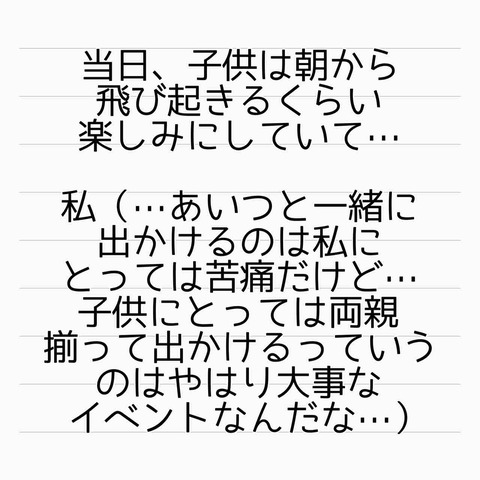 当日、子供は朝から
飛び起きるくらい
楽しみにしていて…
私（…あいつと一緒に
出かけるのは私に
とっては苦痛だけど…
子供にとっては両親
揃って出かけるっていう
のはやはり大事な
イベントなんだな…）